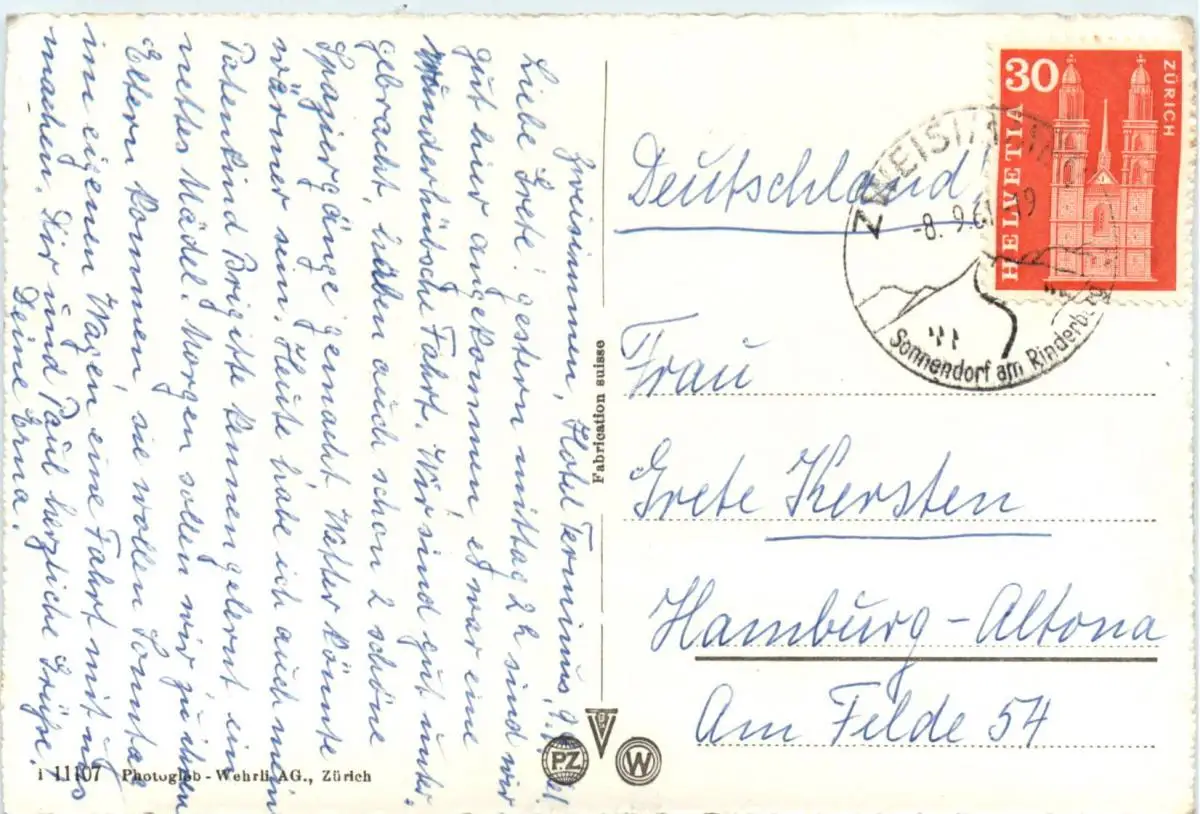 Zweisimmen, Hotel Terminus,
Liebe Grete! gestern mittag 2 sind wir
gut hier angekommen es war eine
Wunderhübsche Fahrt. Wir sind gut unter-
gebracht, haben auch schon 2 schöne
Spaziergänge gemacht. Wetter könnte
wärmer sein. Heute habe ich auch mein
Patenkind Brigitte kennengelernt ein
nettes Mädel. Morgen sollen wir zu ihren
Eltern kommen, sie wollen Sonntag
im eigenen Wagen eine Fahrt mit uns
machen. Dir und Paul herzliche Grüße.
Deine Erna.
Fabrication suisse
i 11107 Photoglob-Wehrli AG., Zürich
PZ
W
30
HELVETIA
ZÜRICH
-8. 9.61-19
Sonnendorf am Rinderberg
Deutschland
Frau
Grete Kersten
Hamburg-Altona
Am Felde 54